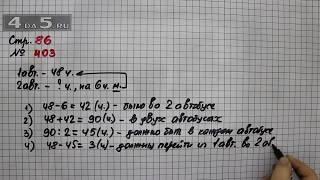 4DA5.RU
Стр. 86
№ 403
1авт. - 48 ч.
2авт. - ? ч., на 6 ч. м.
1) 48-6=42(ч.) - было во 2 автобусе
2) 48+42=90(ч.) - в двух автобусах
3) 90:2=45(ч.) - должно быть в каждом автобусе
4) 48-45=3(ч.) - должны перейти из 1авт. во 2 ав